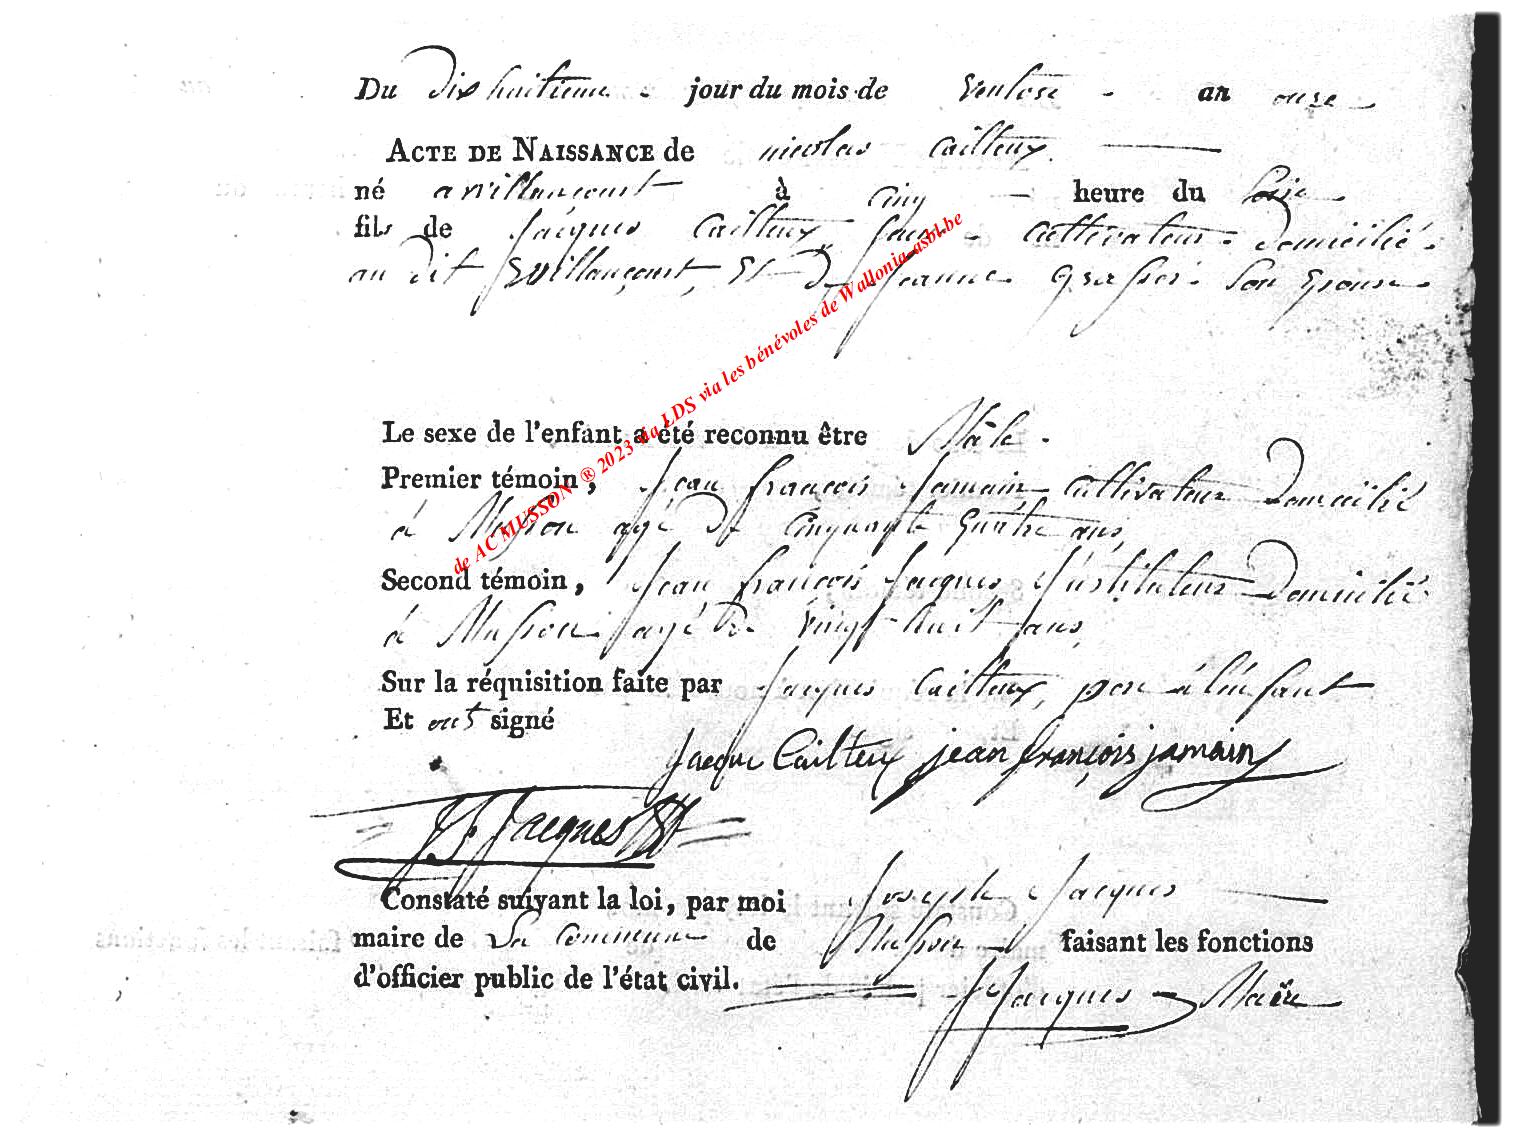 Du dix huitieme jour du mois de Ventose - an onze
ACTE DE NAISSANCE de nicolas Cailteux
né a willancourt à cinq heure du soir
fils de Jacques Cailteux cultivateur domicilié
au dit Willancourt, Et de Jeanne son Epouse
Le sexe de l'enfant a été reconnu être Mâle.
Premier témoin, Jean françois Jamain cultivateur Domicilié
à Musson agé de cinquante quatre ans
Second témoin, Jean françois Jacques Instituteur Domicilié
à Musson agé de vingt huit ans
Sur la réquisition faite par Jacques Cailteux, pere à l'enfant
Et ont signé
Jacque Cailteux jean françois jamain
J. f. Jacques
Constaté suivant la loi, par moi Joseph Jacques
maire de La commune de Musson faisant les fonctions
d'officier public de l'état civil.
J Jacques Maire
de AC MUSSON ® 2023 via LDS via les bénévoles de Wallonia-asbl.be